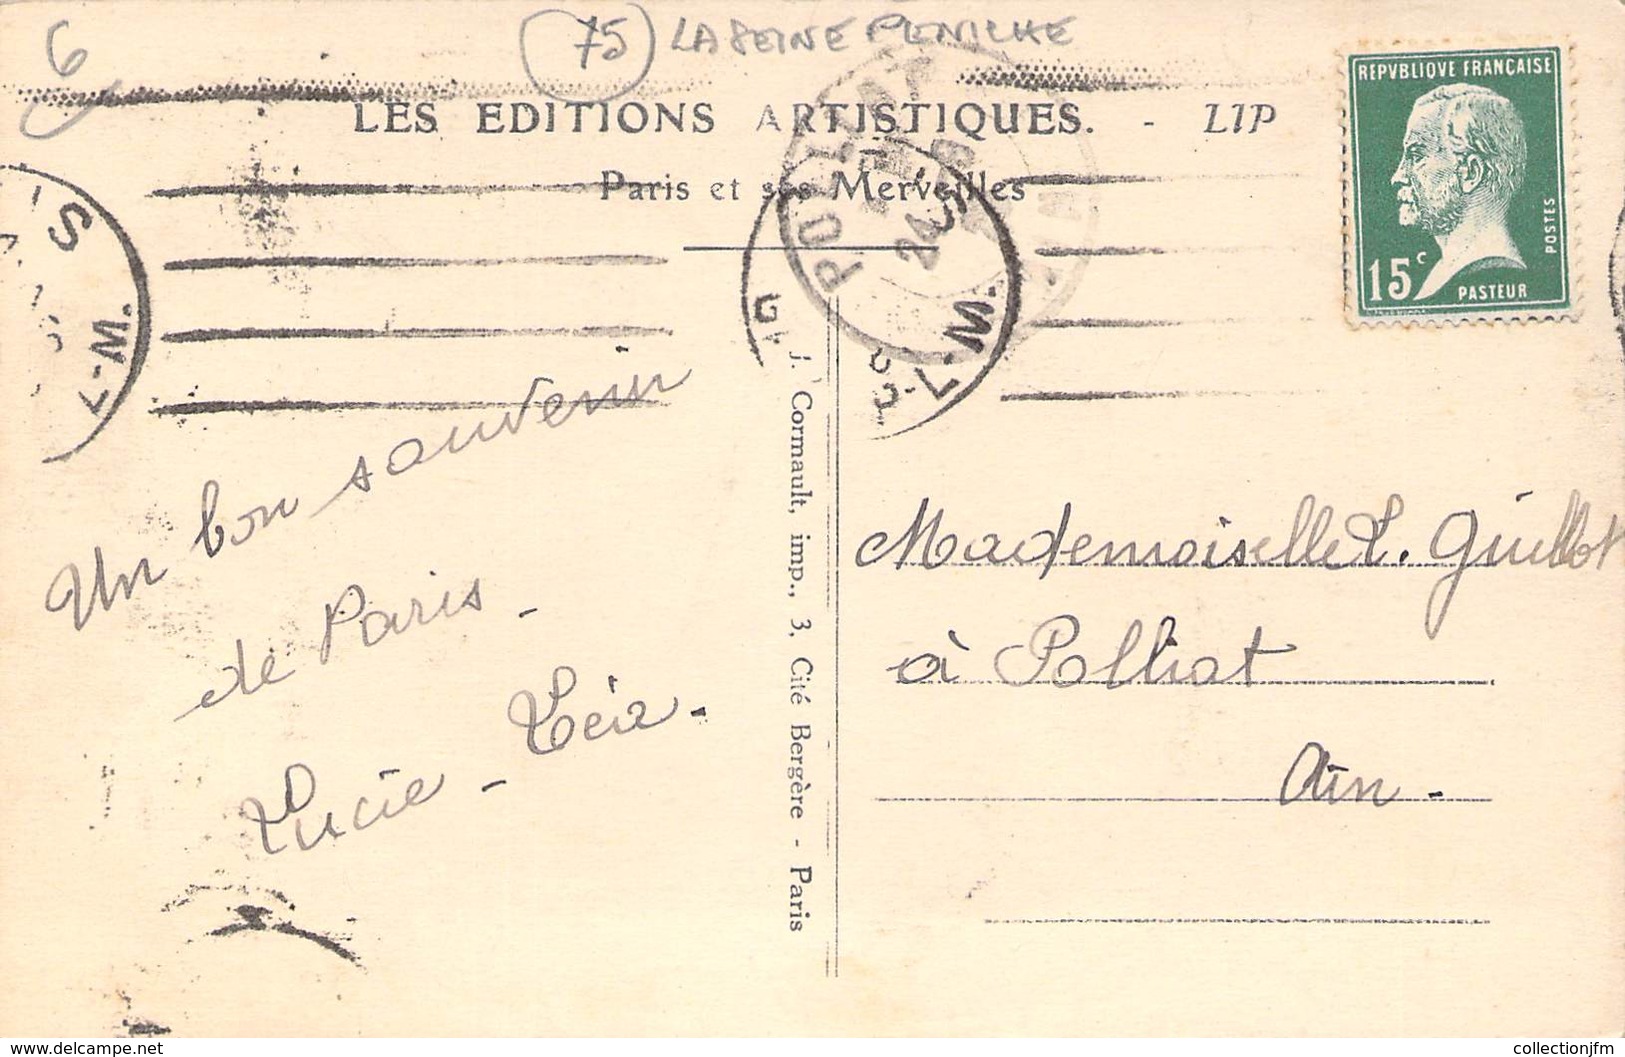 6
75 LA SEINE PENICHE
LES EDITIONS ARTISTIQUES. - LIP
Paris et ses Merveilles
REPVBLIQVE FRANÇAISE
POSTES
15c
PASTEUR
POLLIAT
24
S
L-M.
L-M.
Un bon souvenir
de Paris -
Lucie -
J. Cormault, imp., 3, Cité Bergère - Paris
Mademoiselle L. Guillot
à Polliat
Ain -
collectionjfm
www.delcampe.net